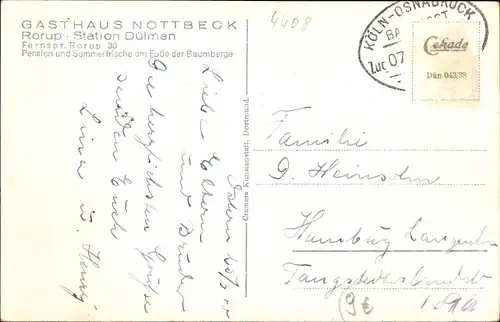 GASTHAUS NOTTBECK
Rorup - Station Dülmen
Fernspr. Rorup 30
Pension und Sommerfrische am Fuße der Baumberge
4408
KÖLN-OSNABRÜCK
Zug 07
Cekade
Dün 043/38
Cramers Kunstanstalt, Dortmund.
Ostern
Liebe Eltern
und Bruder
Die herzlichsten Grüße
senden Euch
Lina u. Henry
Familie
G. Heinsohn
Hamburg Langenhorn
Tangstedterlandstr
9€